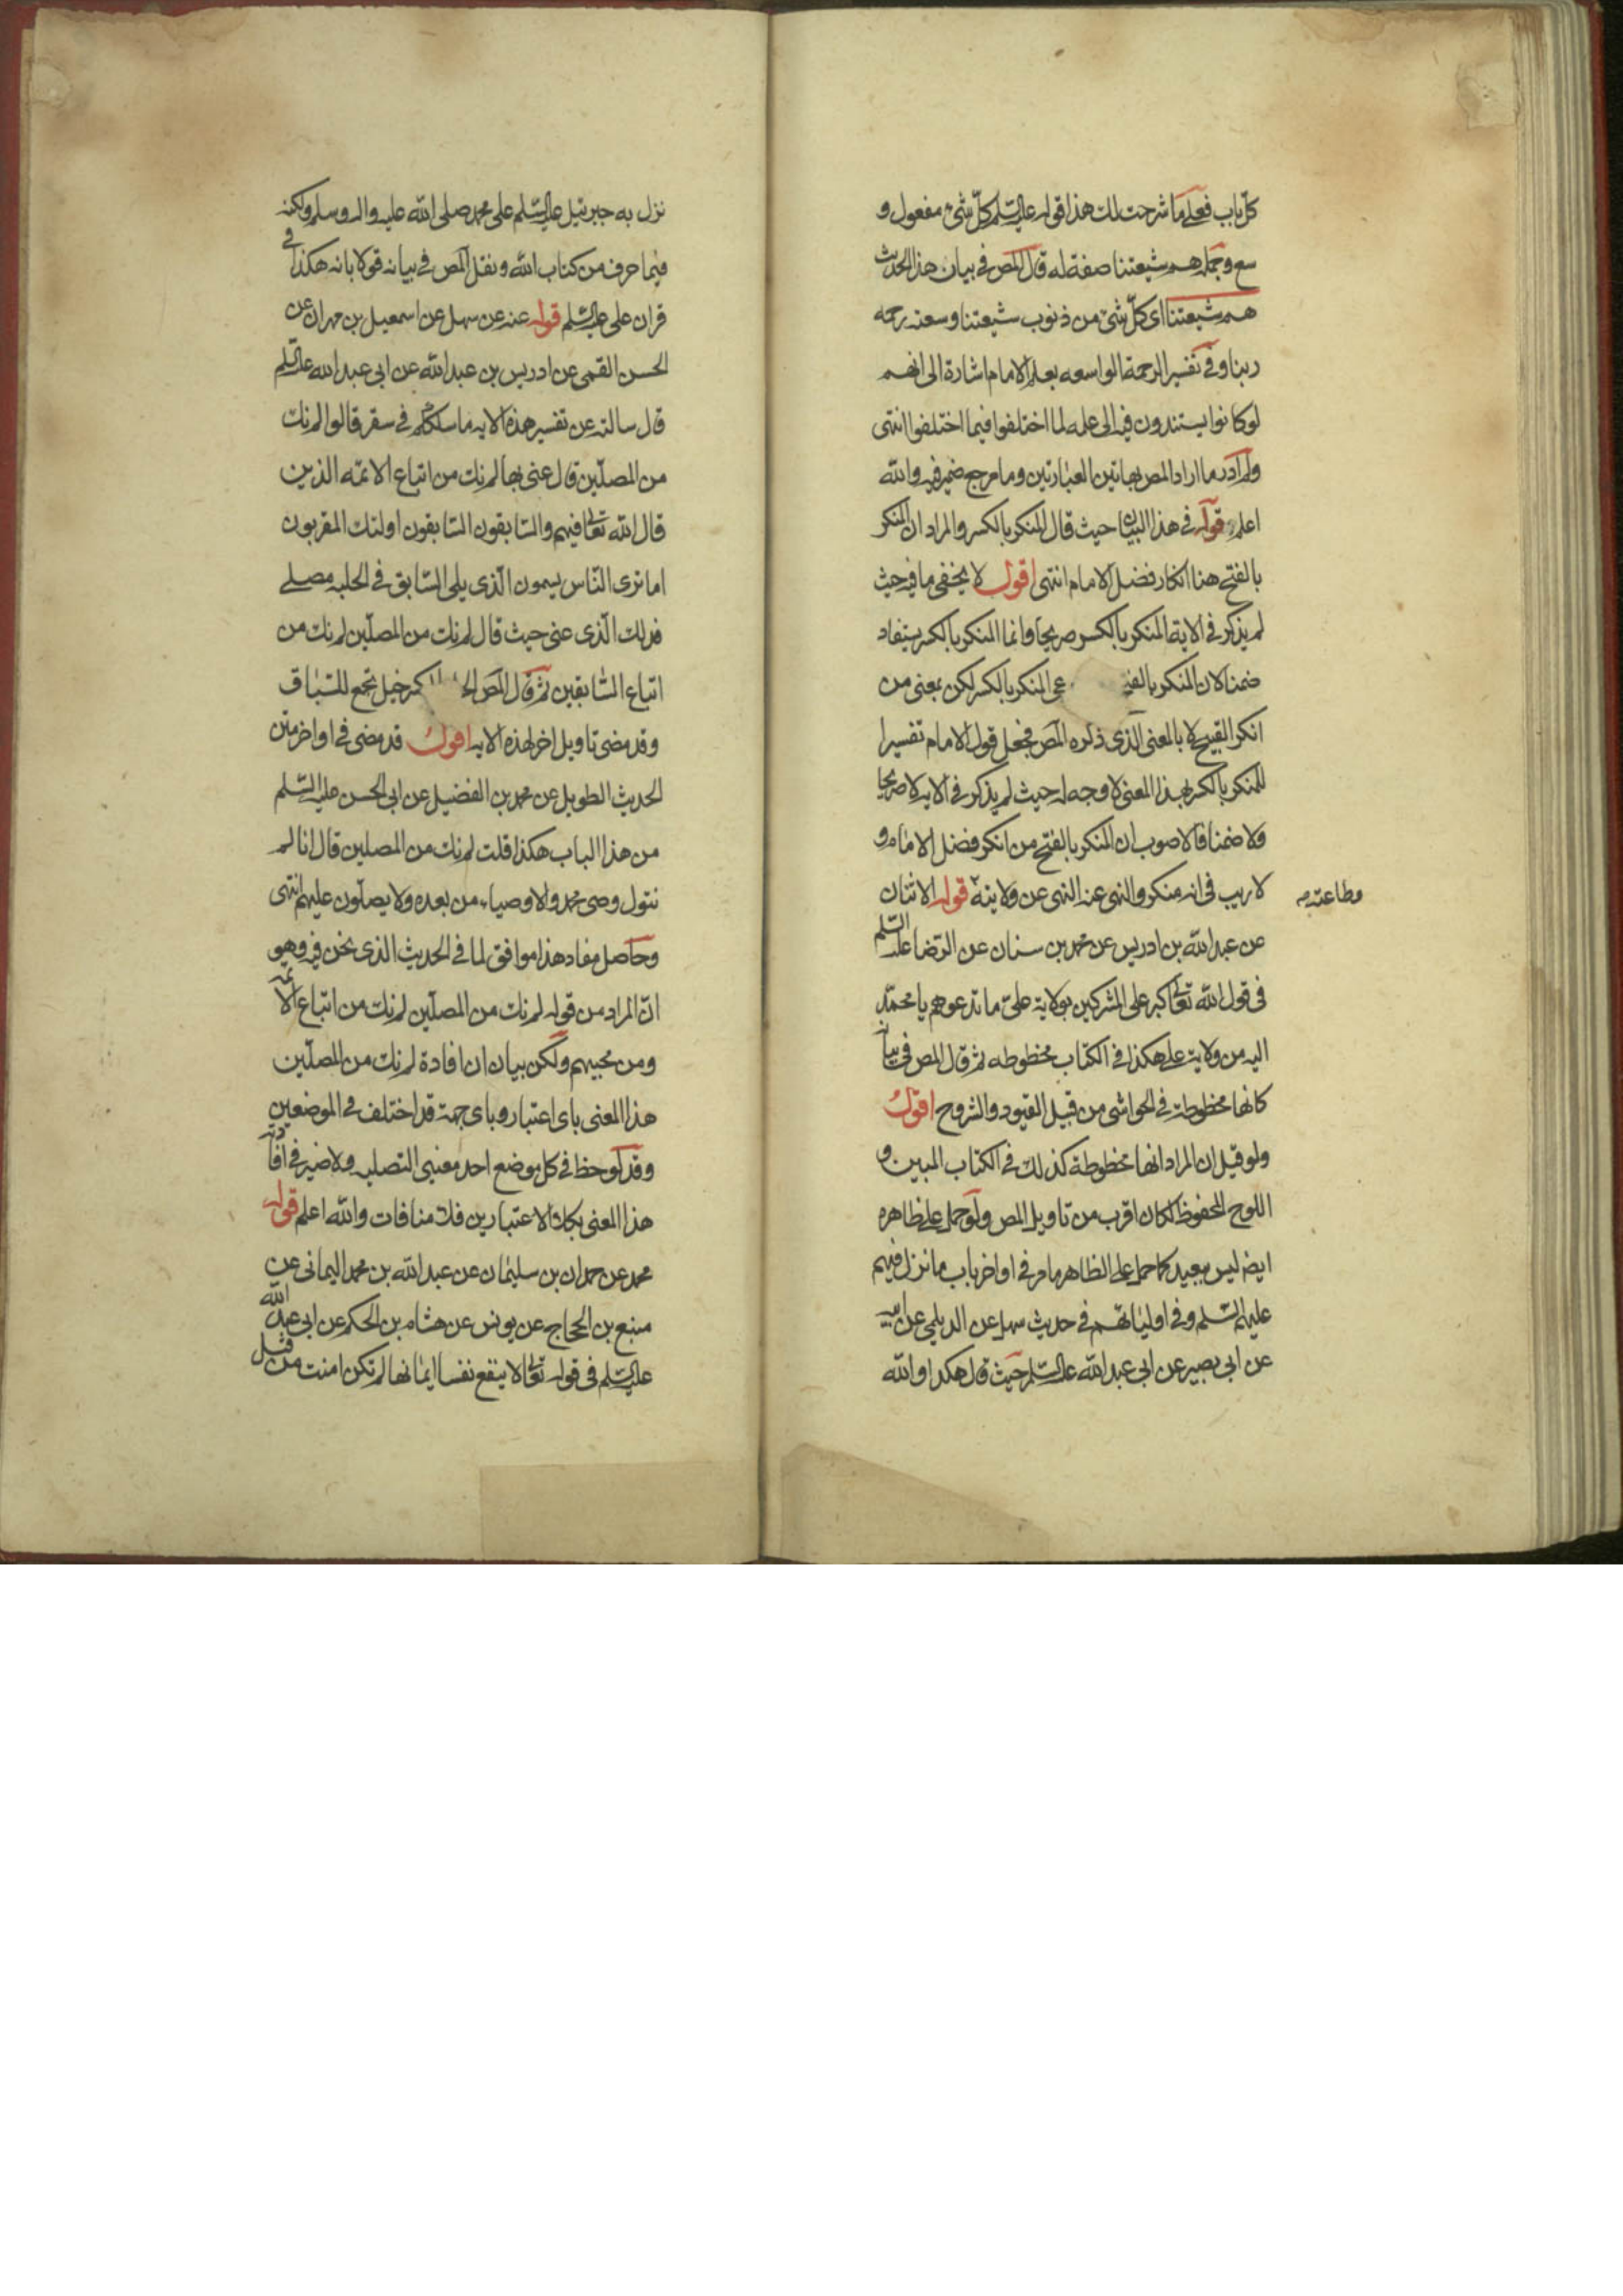 كلّ باب فعلى ما شرحت لك هذا قوله عليه السّلم كلّ شئ مفعول و
سع وجملة هم شيعتنا صفة له قال المص فى بيان هذا الحديث
هم شيعتنا اى كلّ شئ من ذنوب شيعتنا وسعته رحمة
ربنا وفى تفسير الرحمة الواسعه بعلم الامام اشارة الى انهم
لو كانوا يستندون فيه الى علمه لما اختلفوا فيما اختلفوا انتهى
ولم ادر ما اراد المص بهاتين العبارتين وما مرجع ضمير فيه والله
اعلم قوله فى هذا البيان حيث قال المنكر بالكسر والمراد ان المنكر
بالفتح هنا انكار فضل الامام انتهى اقول لا يخفى ما فيه حيث
لم يذكر فى الاية المنكر بالكسر صريحا وانما المنكر بالكسر يستفاد
ضمنا لان المنكر بالفتح المنكر بالكسر لكن بمعنى من
انكر القبيح لا بالمعنى الذى ذكره المص فجعل قول الامام تفسيرا
للمنكر بالكسر بهذا المعنى لا وجه له حيث لم يذكر فى الايه لا صريحا
ولا ضمنا فالاصوب ان المنكر بالفتح من انكر فضل الامام و
لا ريب فى انه منكر والنهى عنه النهى عن ولايته قوله الاثنان
وطاعته
عن عبد الله بن ادريس عن محمد بن سنان عن الرّضا عليه السّلم
فى قول الله تعالى كبر على المشركين بولاية علىّ ما تدعوهم يا محمّد
اليه من ولاية على هكذا فى الكتاب مخطوطه ثم قال المص فى بيانه
كانها مخطوطة فى الحواشى من قبيل القيود والشروح اقول
ولو قيل ان المراد انها مخطوطة كذلك فى الكتاب المبين و
اللوح المحفوظ لكان اقرب من تاويل المص ولو حمل على ظاهره
ايضا ليس ببعيد كما حمل على الظاهر ما مر فى اواخر باب ما نزل فيهم
عليهم السّلم وفى اوليائهم فى حديث سهل عن الديلمى عن ابيه
عن ابى بصير عن ابى عبد الله عليه السّلم حيث قال هكذا والله
نزل به جبرئيل عليه السّلم على محمد صلى الله عليه واله وسلم ولكنه
فيما حرف من كتاب الله ونقل المص فى بيانه قولا بانه هكذا فى
قران على عليه السّلم قوله عنه عن سهل عن اسمعيل بن مهران عن
الحسن القمى عن ادريس بن عبد الله عن ابى عبد الله عليه السّلم
قال سالته عن تفسير هذه الايه ما سلككم فى سقر قالوا لم نك
من المصلّين قال عنى بها لم نك من اتباع الائمّه الذين
قال الله تعالى فيهم والسّابقون السّابقون اولئك المقربون
اما ترى النّاس يسمون الّذى يلى السّابق فى الحلبه مصلى
فذلك الّذى عنى حيث قال لم نك من المصلّين لم نك من
اتباع السّابقين ثم قال المص خيل تجمع للسّباق
وقد مضى تاويل اخر لهذه الايه اقول قد مضى فى اواخر متن
الحديث الطويل عن محمد بن الفضيل عن ابى الحسن عليه السّلم
من هذا الباب هكذا قلت لم نك من المصلين قال انا لم
نتول وصى محمد والاوصياء من بعده ولا يصلّون عليهم انتهى
وحاصل مفاد هذا موافق لما فى الحديث الذى نحن فيه وهو
انّ المراد من قوله لم نك من المصلّين لم نك من اتباع الائمه
ومن محبيهم ولكن بيان ان افادة لم نك من المصلّين
هذا المعنى باى اعتبار وباى جهة قد اختلف فى الموضعين
وقد لوحظ فى كل موضع احد معنيى التصليه ولا ضير فى افادته
هذا المعنى بكلا الاعتبارين فلا منافات والله اعلم قوله
محمد عن حمدان بن سليمان عن عبد الله بن محمد اليمانى عن
منيع بن الحجاج عن يونس عن هشام بن الحكم عن ابى عبد الله
عليه السّلم فى قوله تعالى لا ينفع نفسا ايمانها لم تكن امنت من قبل